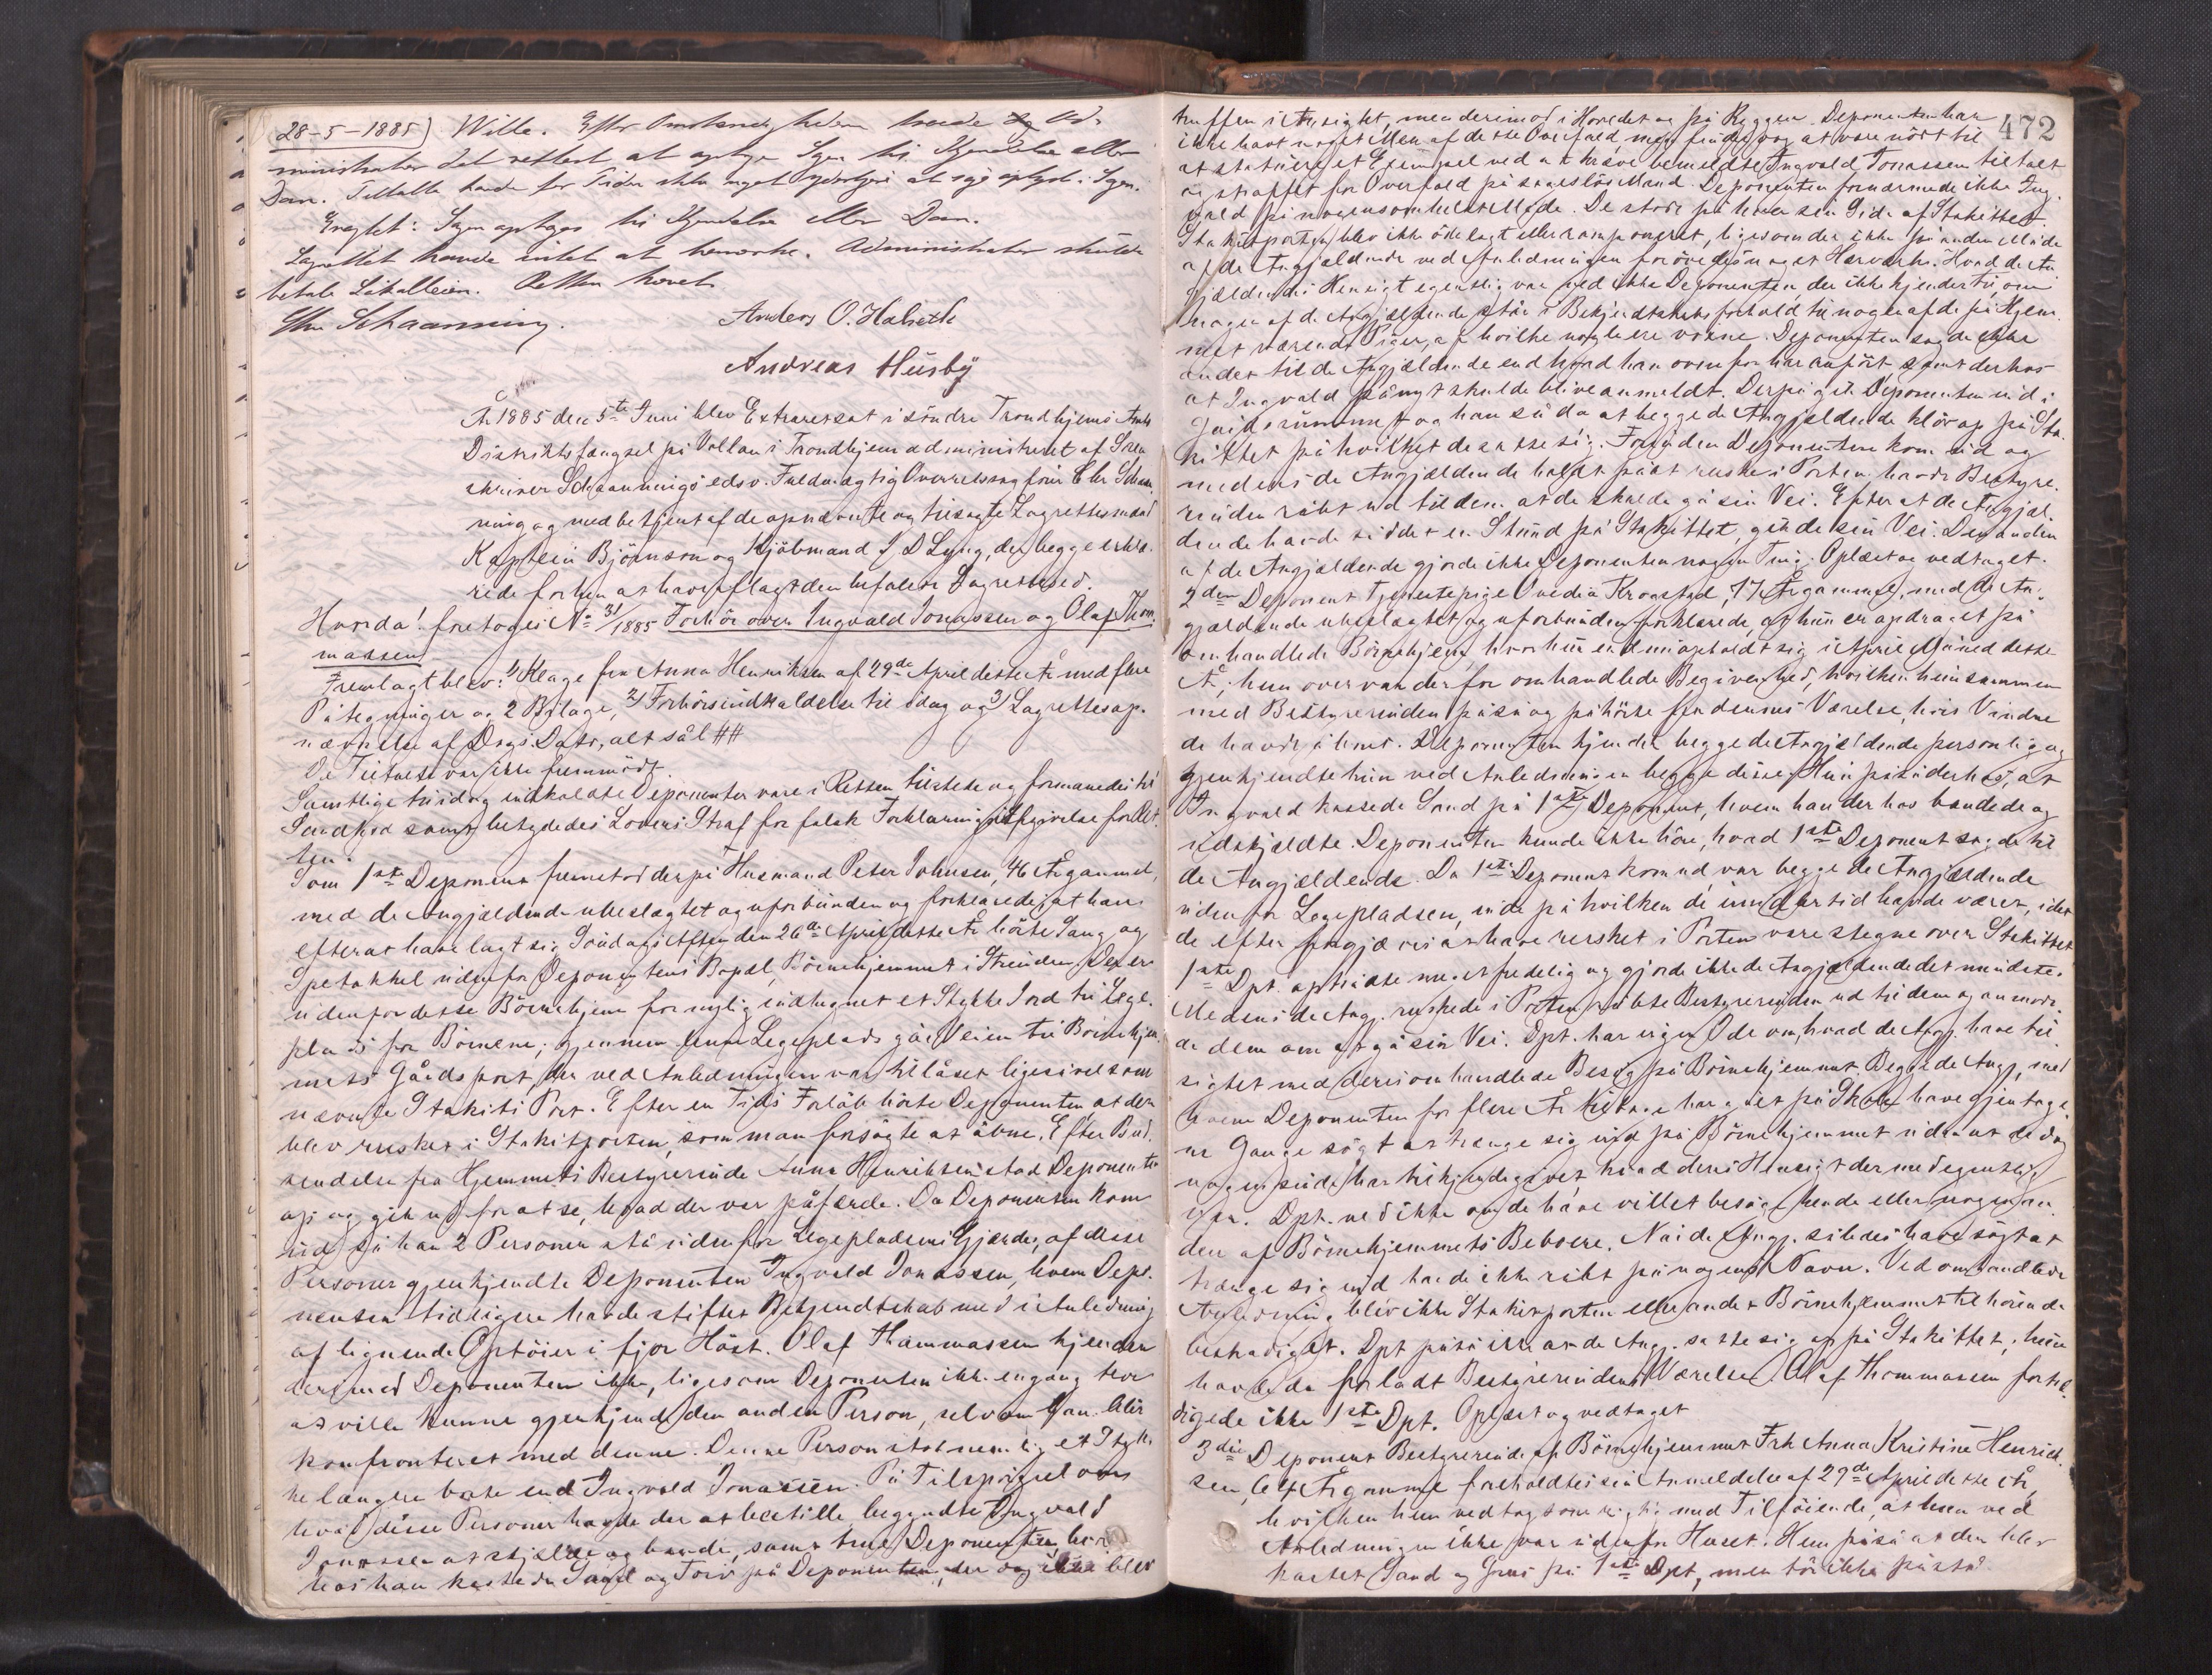 28-5-1885) Wille. Efter Omstændighederne havde Ad-
ministrator det rettest at optage Sagen til Kjendelse eller
Dom. Tiltalte havde for Tiden ikke noget yderligere at oplyst i Sagen.
Eragtet: Sagen optages til Kjendelse eller Dom.
Lagrettet havde intet at bemærke. Administrator skulde
betale Lokalleien. Retten hævet
Chr Schaanning. Anders O. Halseth
Andreas Husby
År 1885 den 5te Juni blev Extraretsat i söndre Trondhjems Amts
Distriktsfængsel på Vollan i Trondhjem administreret af Soren
skriver Schaannings edsv. Fuldmægtig Overretssagförer Chr Schaan
ning og med betjent af de opnævnte og tilsagte Lagrettesmænd
Kaptein Björnson og Kjöbmand J D Lyng, der begge erklæ-
rede forhen at have aflagt den befalede Lagrettesed.
Hvorda! foretoges No 31/1885 Forhör over Ingvald Jonassen og Olaf Thom
massen
Fremlagt blev: 1/ Klage fra Anna Henriksen af 29de April dette År med flere
Påtegninger og 2 Bilage, 2/ Forhörsindkaldelse til idag og 3/ Lagrettesop-
nævnelse af Dags Dato, alt sål ##
De Tiltalte var ikke fremmödt
Samtlige til idag indkaldte Deponenter vare i Retten tilstede og formanedes til
Sandhed samt betydedes Lovens Straf for falsk Forklarings Afgivelse for Ret-
ten.
Som 1ste Deponent fremstod derpå Husmand Peter Johnsen, 46 År gammel,
med de Angjældende ubeslægtet og uforbunden og forklarede, at han
efterat have lagt sig Söndags Aften den 26de April dette År hörte Sang og
Spetakkel udenfor Deponentens Bopæl, Börnehjemmet i Strinden. Der er
udenfor dette Börnehjem for nylig indhegnet et Stykke Jord til Lege-
plads for Börnene; gjennem denne Legeplads går Veien til Börnehjem
mets Gårdsport, der ved Anledningen var tillåset ligesåvel som
nævnte Stakits Port. Efter en Tids Forlöb hörte Deponenten at der
blev rusket i Stakitporten, som man forsögte at åbne. Efter Bud-
sendelse fra Hjemmets Bestyrerinde Anna Henriksen stod Deponenten
op og gik ud for at se, hvad der var påfærde. Da Deponenten kom
ud, så han 2 Personer stå udenfor Legepladsens Gjærde, af disse
Personer gjenkjendte Deponenten Ingvald Jonassen, hvem Depo-
nenten tidligere havde stiftet Bekjendtskab med i Anledning
af lignende Optöier i fjor Höst. Olaf Thommassen kjender
derimod Deponenten ikke, ligesom Deponenten ikke engang tror
at ville kunne gjenkjende den anden Person, selv om han blir
konfronteret med denne. Denne Person stod nemlig et Styk
ke længere borte end Ingvald Jonassen. På Tilspörgsel om
hvad disse Personer havde der at bestille begyndte Ingvald
Jonassen at skjælde og bande, samt true Deponenten, hvor
hos han kastede Sand og Torv på Deponenten, der dog ikke blev
472
truffen i Ansigtet, men derimod i Hovedet og på Ryggen. Deponenten har
ikke havt noget Men af dette Overfald, men finder dog at være nödt til
at statuere et Exempel ved at kræve bemeldte Ingvald Jonassen tiltalt
og straffet for Overfald på sageslös Mand. Deponenten fornærmede ikke Ing
vald på nogensomhelst Måde. De stode på hver sin Side af Stakittet.
Stakitporten blev ikke ödelagt eller ramponeret, ligesom der ikke på anden Måde
af de Angjældende ved Anledningen forövedes noget Hærværk. Hvad de An
gjældendes Hensigt egentlig var ved ikke Deponenten, der ikke kjender til om
nogen af de Angjældende står i Bekjendtskabsforhold til nogen af de på Hjem-
met værende Piger, af hvilke nogle ere voxne. Deponenten sagde ikke
andet til de Angjældende end hvad han ovenfor har anfört samt derhos
at Ingvald på nyt skulde blive anmeldt. Derpå gik Deponenten ind i
Gårdsrummet og han så da at begge de Angjældende klöv op på Sta-
kittet på hvilket de satte sig. Förinden Deponenten kom ud og
medens de Angjældende holdt på at ruske i Porten havde Bestyre-
rinden råbt ud til dem at de skulde gå sin Vei. Efter at de Angjæl-
dende havde siddet en Stund på Stakittet, gik de sin Vei. Den anden
af de Angjældende gjorde ikke Deponenten nogen Ting. Oplæst og vedtaget.
2den Deponent Tjenestepige Ovedia Krogstad, 17 År gammel, med de An-
gjældende ubeslægtet og uforbunden forklarede, at hun er opdraget på
omhandlede Börnehjem, hvor hun endnu opholdt sig i April Måned dette
År; hun overvar den for omhandlede Begivenhed, hvilken hun sammen
med Bestyrerinden påså og påhörte fra dennes Værelse, hvis Vindue
de havde åbnet. Deponenten kjender begge de Angjældende personlig og
gjenkjendte hun ved Anledningen begge disse. Hun påså derhos, at
Ingvald kastede Sand på 1ste Deponent, hvem han derhos bandede og
udskjældte. Deponenten kunde ikke höre, hvad 1ste Deponent sagde til
de Angjældende. Da 1ste Deponent kom ud, var begge de Angjældende
udenfor Legepladsen, inde på hvilken de imidlertid havde været, idet
de efter forgjæves at have rusket i Porten vare stegne over Stakittet
1ste Dpt. optrådte meget fredelig og gjorde ikke de Angjældende det mindste.
Medens de Angj. ruskede i Porten råbte Bestyrerinden ud til dem og anmode-
de dem om at gå sin Vei. Dpt. har ingen Ide om, hvad de Angj. have til-
sigtet med deres omhandlede Besög på Börnehjemmet. Begge de Angj., med
hvem Deponenten for flere År tilbage har gået på Skole have gjentag-
ne Gange sögt at trænge sig ind på Börnehjemmet uden at de dog
nogensinde har tilkjendegivet hvad deres Hensigt dermed egentlig
var. Dpt. ved ikke om de have villet besöge hende eller nogen an-
den af Börnehjemmets Beboere. Når de Angj. således have sögt at
trænge sig ind have de ikke råbt på nogens Navn. Ved omhandlede
Anledning blev ikke Stakitporten eller andet Börnehjemmet tilhörende
beskadiget. Dpt påså ikke at de Angj. satte sig op på Stakittet; hun
havde da forladt Bestyrerindens Værelse. Olaf Thommassen fortal
digede ikke 1ste Dpt. Oplæst og vedtaget
3die Deponent Bestyrerinde af Börnehjemmet Frk Anna Kristine Henrik-
sen, 64 År gammel foreholdtes sin Anmeldelse af 29de April dette År,
hvilken hun vedtog som rigtig med Tilföiende, at hun ved
Anledningen ikke var udenfor Huset. Hun påså at der blev
kastet Sand og Grus på 1ste Dpt, men tör ikke påstå